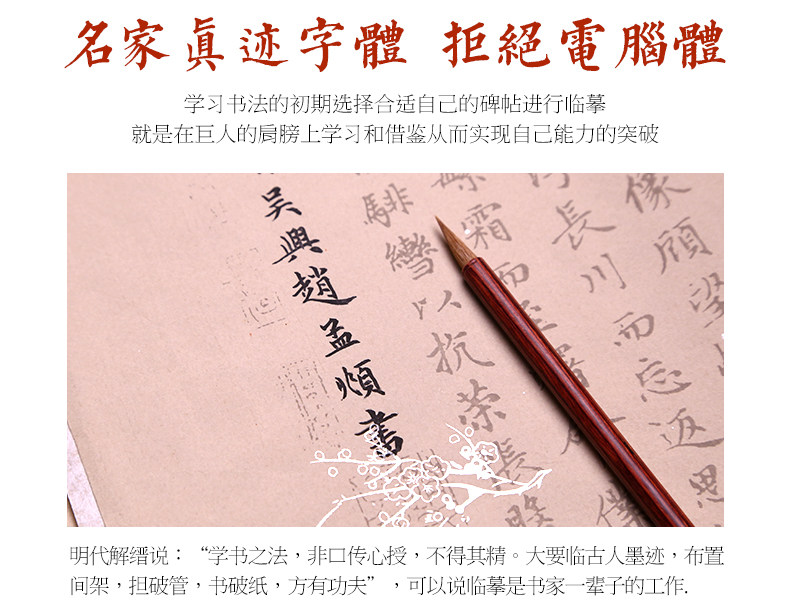 名家真迹字體 拒絕電腦體
学习书法的初期选择合适自己的碑帖进行临摹
就是在巨人的肩膀上学习和借鉴从而实现自己能力的突破
像顧望
長川而忘返思
霜而
騑轡以抗
吳興趙孟頫書
明代解缙说：“学书之法，非口传心授，不得其精。大要临古人墨迹，布置
间架，担破管，书破纸，方有功夫”，可以说临摹是书家一辈子的工作.